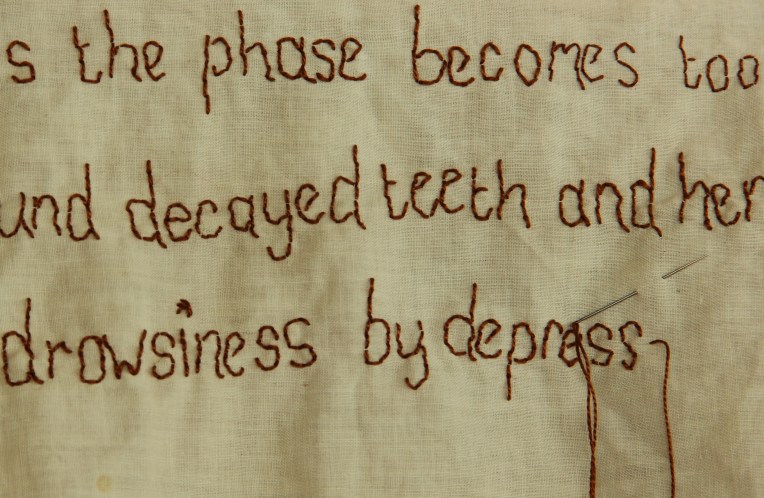 s the phase becomes too
und decayed teeth and her
drowsiness by depress